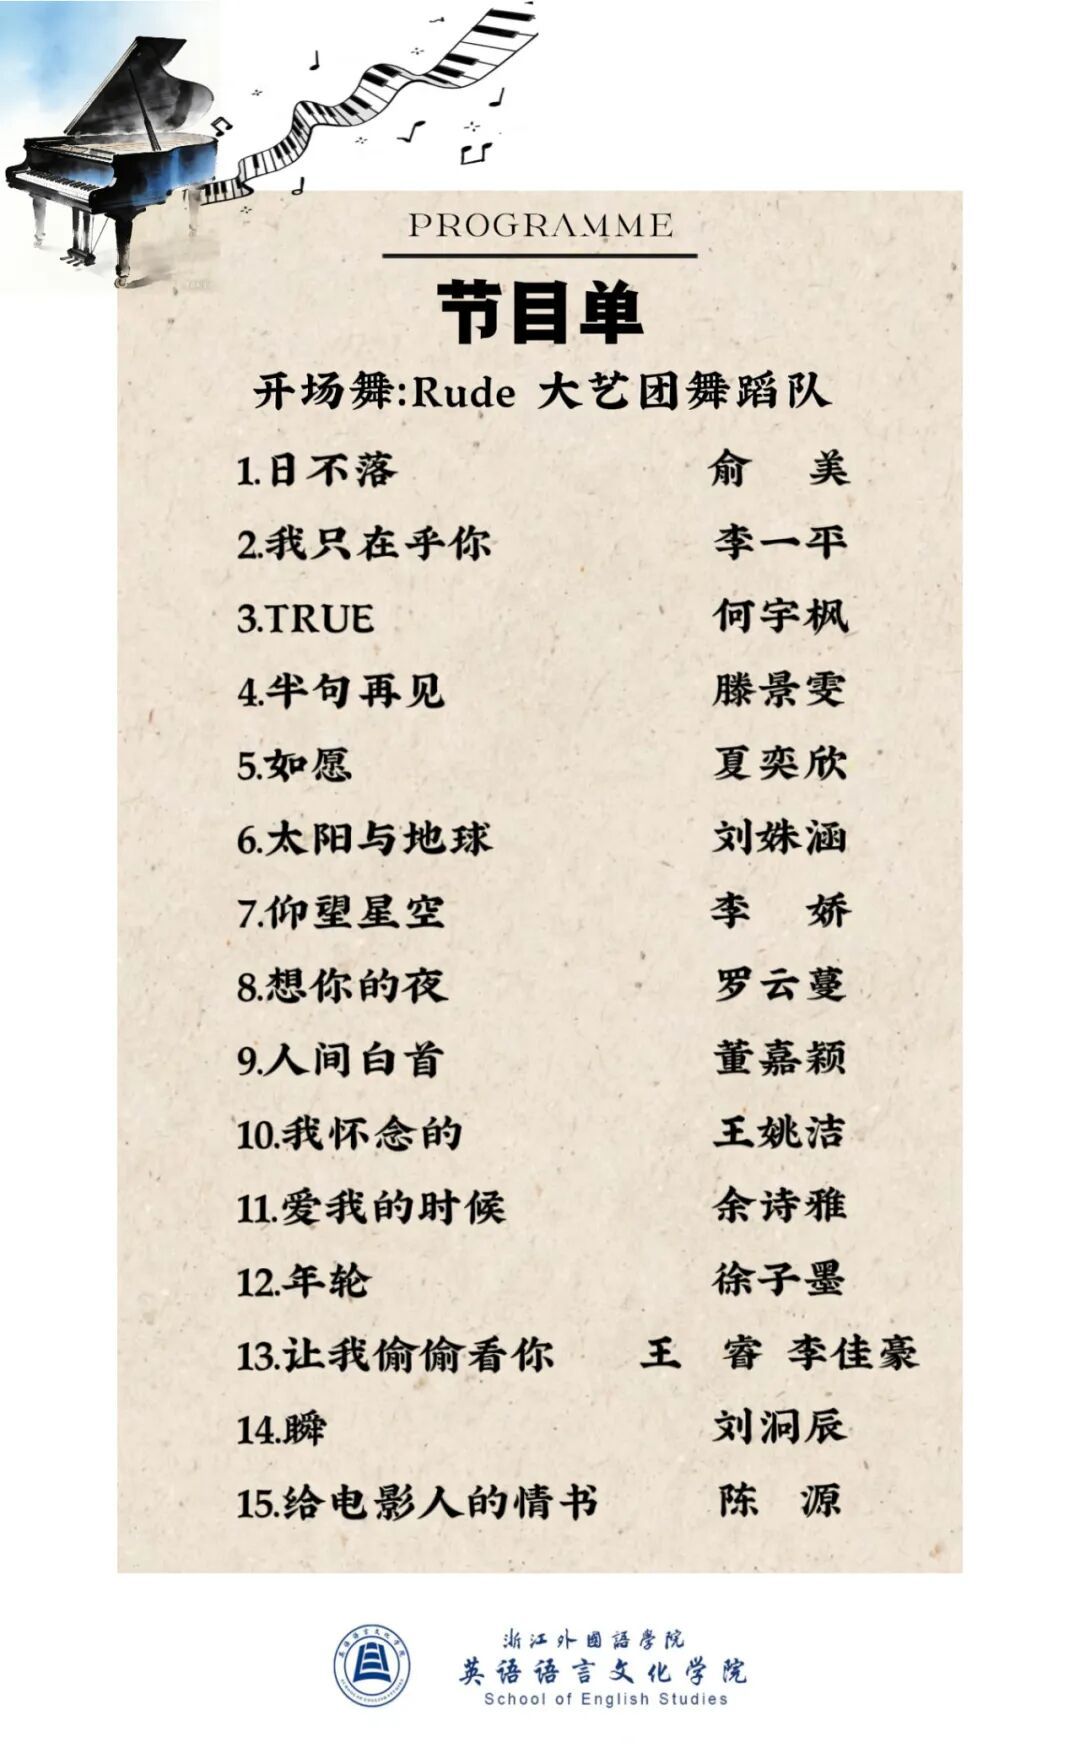 PROGRAMME
节目单
开场舞:Rude 大艺团舞蹈队
1.日不落 俞 美
2.我只在乎你 李一平
3.TRUE 何宇枫
4.半句再见 滕景雯
5.如愿 夏奕欣
6.太阳与地球 刘姝涵
7.仰望星空 李 娇
8.想你的夜 罗云蔓
9.人间白首 董嘉颖
10.我怀念的 王姚洁
11.爱我的时候 余诗雅
12.年轮 徐子墨
13.让我偷偷看你 王 睿 李佳豪
14.瞬 刘泂辰
15.给电影人的情书 陈 源
浙江外國語學院
英语语言文化学院
School of English Studies